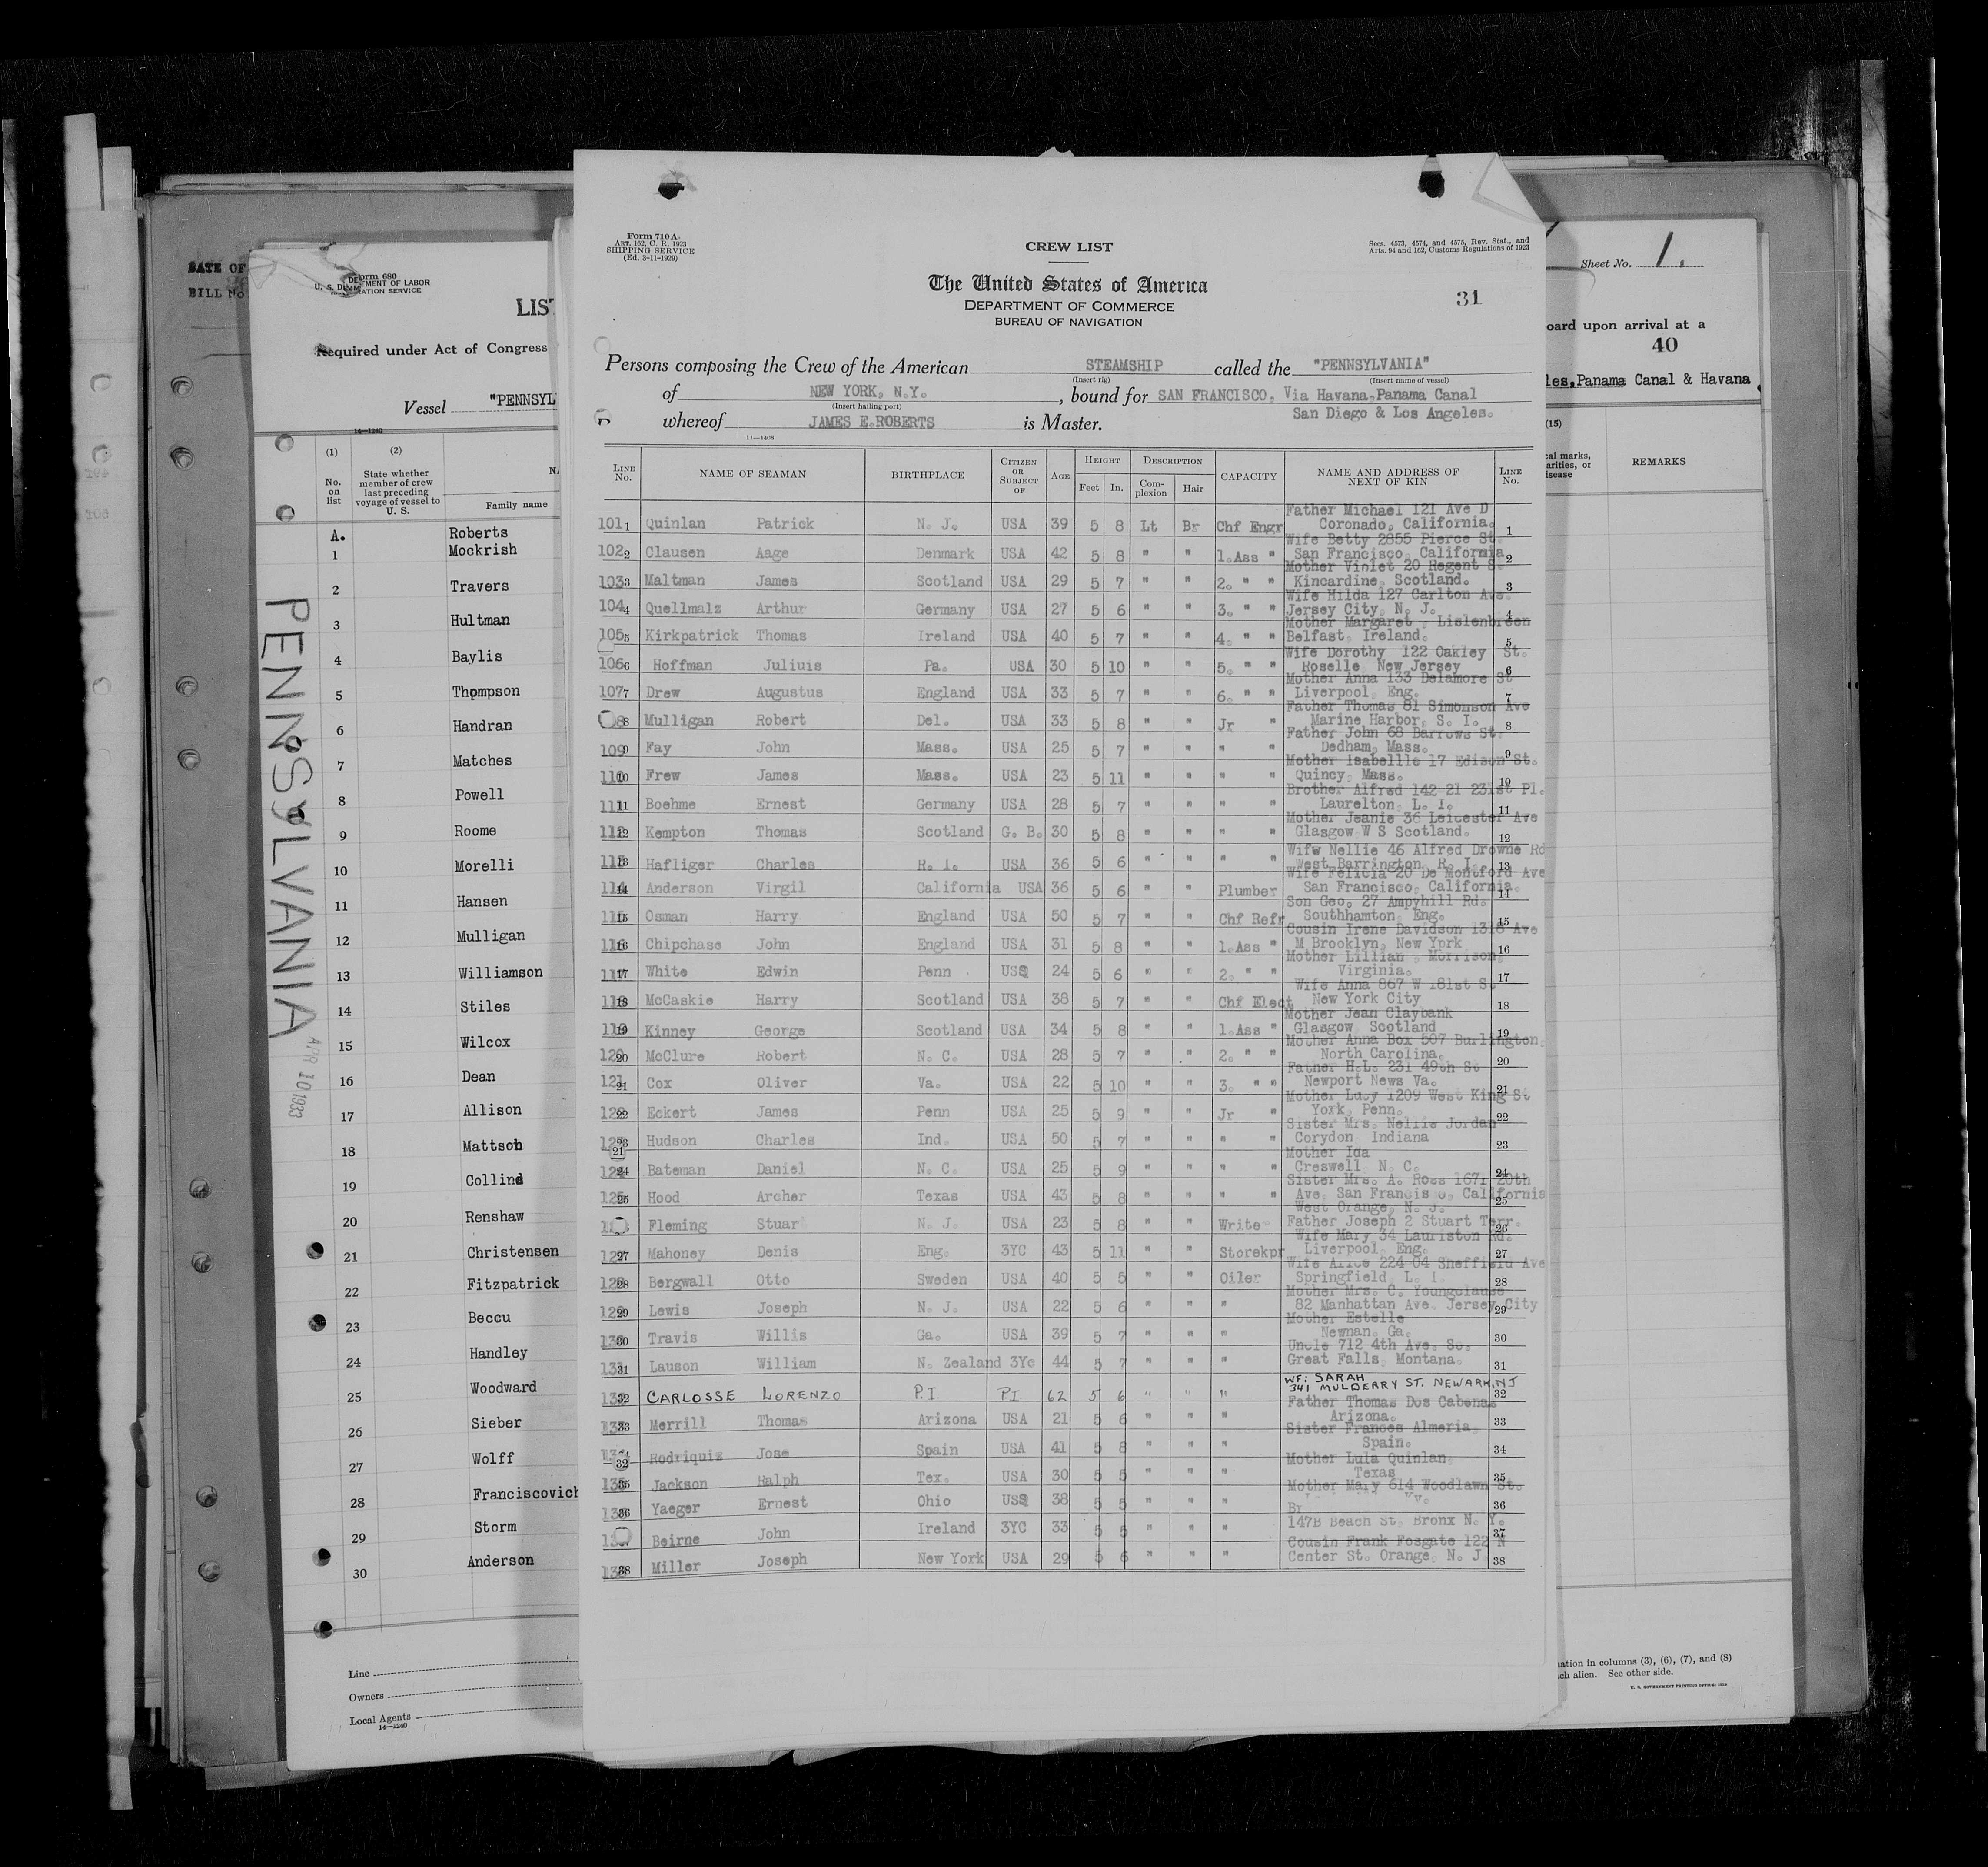 DATE OF
BILL No
Form 680
U. S. DEPARTMENT OF LABOR
IMMIGRATION SERVICE
LIST
Required under Act of Congress
Vessel "PENNSYL
14—1240
(1) (2)
No. on list
State whether member of crew last preceding voyage of vessel to U. S.
Family name
A. Roberts
1 Mockrish
2 Travers
3 Hultman
4 Baylis
5 Thompson
6 Handran
7 Matches
8 Powell
9 Roome
10 Morelli
11 Hansen
12 Mulligan
13 Williamson
14 Stiles
15 Wilcox
16 Dean
17 Allison
18 Mattson
19 Collins
20 Renshaw
21 Christensen
22 Fitzpatrick
23 Beccu
24 Handley
25 Woodward
26 Sieber
27 Wolff
28 Franciscovich
29 Storm
30 Anderson
Line
Owners
Local Agents
14—1240
PENNSYLVANIA
APR 10 1933
Form 710A
ART. 162, C. R. 1923
SHIPPING SERVICE
(Ed. 3-11-1929)
CREW LIST
Secs. 4573, 4574, and 4575, Rev. Stat., and
Arts. 94 and 162, Customs Regulations of 1923
The United States of America
DEPARTMENT OF COMMERCE
BUREAU OF NAVIGATION
31
Persons composing the Crew of the American STEAMSHIP called the "PENNSYLVANIA"
(Insert rig) (Insert name of vessel)
of NEW YORK, N.Y. , bound for SAN FRANCISCO, Via Havana, Panama Canal
(Insert hailing port)
San Diego & Los Angeles.
whereof JAMES E. ROBERTS is Master.
11—1408
LINE No. NAME OF SEAMAN BIRTHPLACE CITIZEN OR SUBJECT OF AGE HEIGHT Feet In. DESCRIPTION Complexion Hair CAPACITY NAME AND ADDRESS OF NEXT OF KIN LINE No.
Father Michael 121 Ave D
101 1 Quinlan Patrick N. J. USA 39 5 8 Lt Br Chf Engr Coronado, California. 1
Wife Betty 2855 Pierce St
102 2 Clausen Aage Denmark USA 42 5 8 " " 1.Ass " San Francisco, California 2
Mother Violet 20 Regent S.
103 3 Maltman James Scotland USA 29 5 7 " " 2. " " Kincardine, Scotland. 3
Wife Hilda 127 Carlton Ave.
104 4 Quellmalz Arthur Germany USA 27 5 6 " " 3. " " Jersey City, N. J. 4
Mother Margaret , Lislenbreen
105 5 Kirkpatrick Thomas Ireland USA 40 5 7 " " 4. " " Belfast, Ireland. 5
Wife Dorothy 122 Oakley St.
106 6 Hoffman Juliuis Pa. USA 30 5 10 " " 5. " " Roselle, New Jersey 6
Mother Anna 133 Delamore St
107 7 Drew Augustus England USA 33 5 7 " " 6. " " Liverpool, Eng. 7
Father Thomas 81 Simonson Ave
8 8 Mulligan Robert Del. USA 33 5 8 " " Jr " Marine Harbor, S. I. 8
Father John 68 Barrows St.
109 9 Fay John Mass. USA 25 5 7 " " " " Dedham, Mass. 9
Mother Isabellle 17 Edison St.
110 10 Frew James Mass. USA 23 5 11 " " " " Quincy, Mass. 10
Brother Alfred 142 21 231st Pl.
111 11 Boehme Ernest Germany USA 28 5 7 " " " " Laurelton, L. I. 11
Mother Jeanie 36 Leicester Ave
112 12 Kempton Thomas Scotland G. B. 30 5 8 " " " " Glasgow W S Scotland. 12
Wife Nellie 46 Alfred Drowne Rd
113 13 Hafliger Charles R. I. USA 36 5 6 " " " " West Barrington, R. I. 13
Wife Felicia 20 De Montford Ave
114 14 Anderson Virgil California USA 36 5 6 " " Plumber San Francisco, California. 14
Son Geo. 27 Ampyhill Rd.
115 15 Osman Harry England USA 50 5 7 " " Chf Refr Southhamton, Eng. 15
Cousin Irene Davidson 1318 Ave
116 16 Chipchase John England USA 31 5 8 " " 1.Ass " M Brooklyn, New York 16
Mother Lillian , Morrison,
117 17 White Edwin Penn . USA 24 5 6 " " 2. " " Virginia. 17
Wife Anna 867 W 181st St
118 18 McCaskie Harry Scotland USA 38 5 7 " " Chf Elect New York City 18
Mother Jean Claybank
119 19 Kinney George Scotland USA 34 5 8 " " 1.Ass " Glasgow, Scotland 19
Mother Anna Box 507 Burlington,
120 20 McClure Robert N. C. USA 28 5 7 " " 2. " " North Carolina. 20
Father H.L. 231 49th St
121 21 Cox Oliver Va. USA 22 5 10 " " 3. " " Newport News Va. 21
Mother Lucy 1209 West King St
122 22 Eckert James Penn USA 25 5 9 " " Jr " York, Penn. 22
Sister Mrs. Nellie Jordan
123 23 Hudson Charles Ind. USA 50 5 7 " " " " Corydon, Indiana 23
21
Mother Ida
124 24 Bateman Daniel N. C. USA 25 5 9 " " " " Creswell, N. C. 24
Sister Mrs. A. Ross 1671 20th
125 25 Hood Archer Texas USA 43 5 8 " " " " Ave, San Francisco, California 25
West Orange, N. J.
Fleming Stuar N. J. USA 23 5 8 " " Write Father Joseph 2 Stuart Terr. 26
Wife Mary 34 Lauriston Rd.
127 27 Mahoney Denis Eng. 3YC 43 5 11 " " Storekpr Liverpool, Eng. 27
Wife Alice 224 04 Sheffield Ave
128 28 Bergwall Otto Sweden USA 40 5 5 " " Oiler Springfield, L. I. 28
Mother Mrs. C. Youngclause
129 29 Lewis Joseph N. J. USA 22 5 6 " " " 82 Manhattan Ave. Jersey City 29
Mother Estelle
130 30 Travis Willis Ga. USA 39 5 7 " " " Newnan, Ga. 30
Uncle 712 4th Ave. So.
131 31 Lauson William N. Zealand 3Yc 44 5 7 " " " Great Falls, Montana. 31
WF: SARAH
132 32 CARLOSSE LORENZO P.I P.I 62 5 6 " " " 341 MULBERRY ST. NEWARK, NJ 32
Father Thomas Dos Cabenas
133 33 Merrill Thomas Arizona USA 21 5 6 " " " Arizona. 33
Sister Frances Almeria
134 Rodriquiz Jose Spain USA 41 5 8 " " " Spain. 34
32
Mother Lula Quinlan
135 35 Jackson Ralph Tex. USA 30 5 5 " " " Texas 35
Mother Mary 614 Woodlawn St.
136 36 Yaeger Ernest Ohio USA 38 5 5 " " " Br 36
Beirne John Ireland 3YC 33 5 5 " " " 147B Beach St, Bronx N. Y. 37
Cousin Frank Fosgate 122 N
138 38 Miller Joseph New York USA 29 5 6 " " " Center St. Orange, N. J. 38
Sheet No. 1.
oard upon arrival at a
40
les, Panama Canal & Havana
(15)
cal marks,
arities, or
isease
REMARKS
ation in columns (3), (6), (7), and (8)
ch alien. See other side.
U. S. GOVERNMENT PRINTING OFFICE